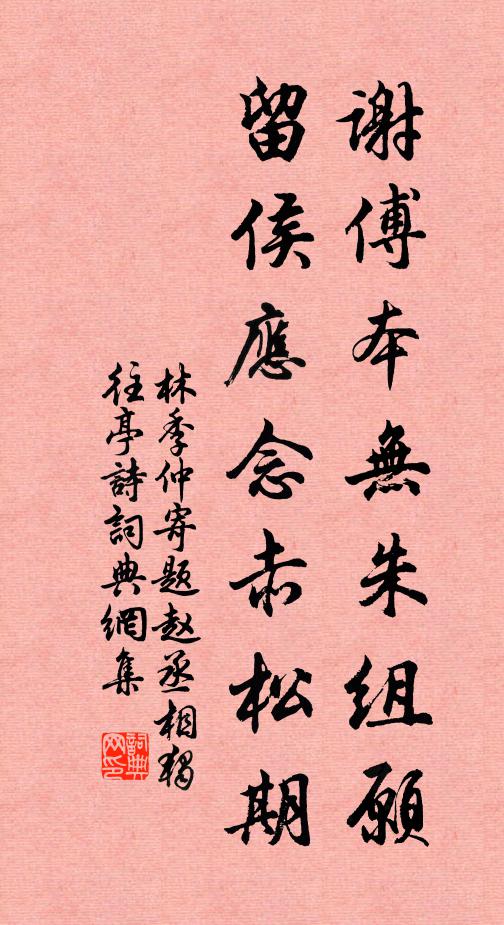 謝傅本無朱組願
留侯應念赤松期
林季仲寄題赵丞相独
往亭詩詞典網集
詞典
网印